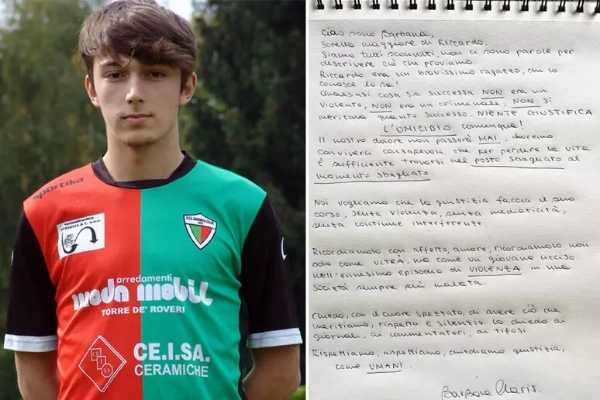 sportika
arredamenti
moda mobil
TORRE DE' ROVERI
CE.I.SA.
CERAMICHE
Ciao sono Barbara,
sorella maggiore di Riccardo.
Siamo tutti sconvolti, non ci sono parole per
descrivere ciò che proviamo.
Riccardo era un bravissimo ragazzo, chi lo
conosce lo sa!
Qualsiasi cosa sia successa NON era un
violento, NON era un criminale, NON si
meritava quanto successo. NIENTE GIUSTIFICA
L'OMICIDIO comunque!
Il nostro dolore non passerà MAI, dovremo
convivere consapevoli che per perdere la vita
è sufficiente trovarsi nel posto sbagliato al
momento sbagliato
Noi vogliamo che la giustizia faccia il suo
corso, senza violenza, senza mediaticità,
senza continue interferenze
Ricordiamolo con affetto, amore, ricordiamolo non
solo come vittima, ma come un giovane ucciso
nell'ennesimo episodio di VIOLENZA in una
società sempre più malata.
Chiedo, con il cuore spezzato, di avere ciò che
meritiamo, rispetto e silenzio. Lo chiedo ai
giornali, ai commentatori, ai tifosi
Rispettiamo, aspettiamo, chiediamo giustizia,
come UMANI.
Barbara Claris